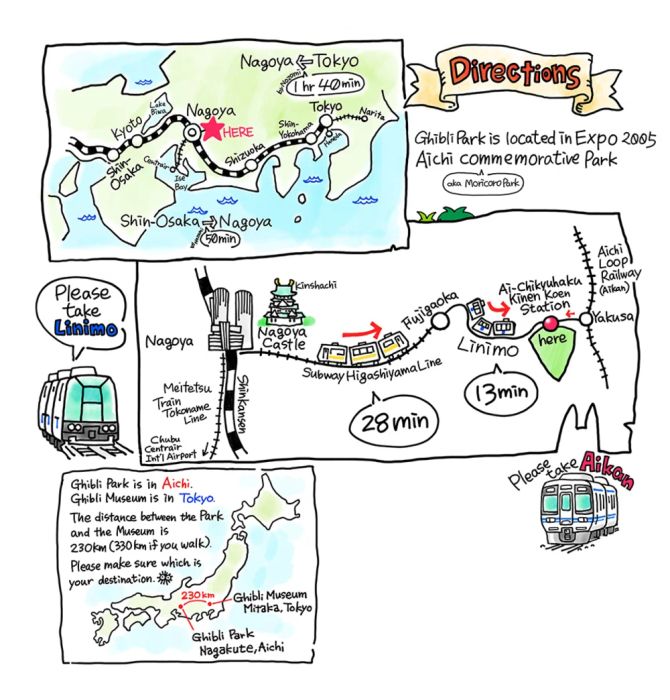 Directions
Ghibli Park is located in Expo 2005
Aichi commemorative Park
aka Moricoro Park
Nagoya ⇐ Tokyo
by Nozomi
1 hr 40min
Tokyo
Narita
Shin-
Yokohama
Haneda
Lake
Biwa
Nagoya
HERE
Kyoto
Shin-
Osaka
Centrair
Ise
Bay
Shizuoka
Shin-Osaka ⇒ Nagoya
50min
Please
take
Linimo
Nagoya
Kinshachi
Nagoya
Castle
Subway Higashiyama Line
28 min
Fujigaoka
Linimo
13min
Ai-Chikyuhaku
Kinen Koen
Station
here
Aichi
Loop
Railway
(Aikan)
Yakusa
Meitetsu
Train
Tokoname
Line
Shinkansen
Chubu
Centrair
Int'l Airport
Please take Aikan
Ghibli Park is in Aichi.
Ghibli Museum is in Tokyo.
The distance between the Park
and the Museum is
230km (330km if you walk).
Please make sure which is
your destination.
230km
Ghibli Museum
Mitaka, Tokyo
Ghibli Park
Nagakute, Aichi